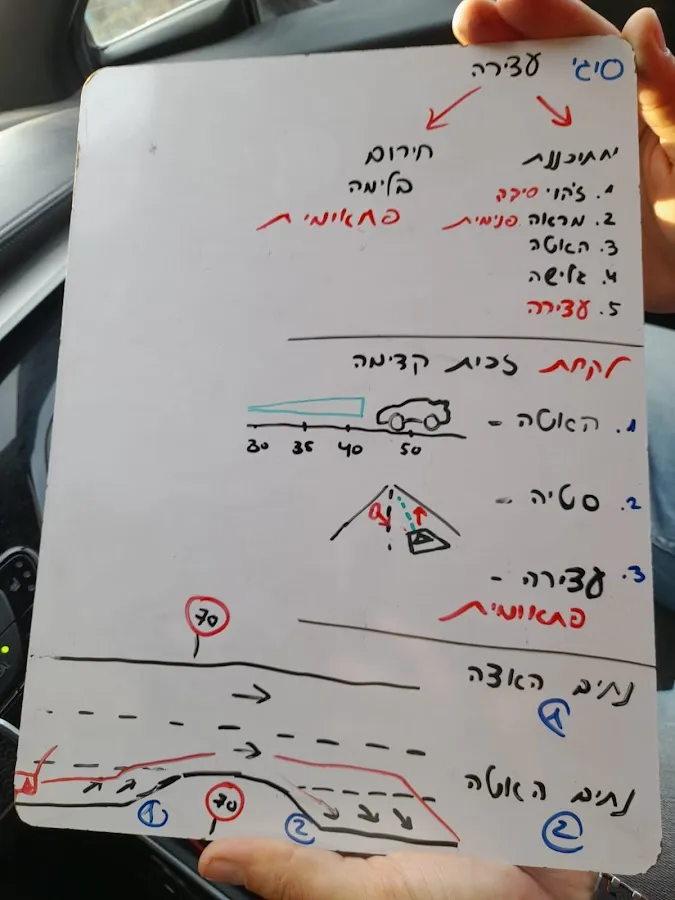 סיגי עצירה
מתוכננת
1. זיהוי סיבה
2. מראה פנימית
3. האטה
4. גלישה
5. עצירה
חירום
בלימה
פתאומית
לקחת זכות קדימה
1. האטה -
30 35 40 50
2. סטיה -
3. עצירה -
פתאומית
נתיב האצה
1
70
נתיב האטה
2
1
70
2